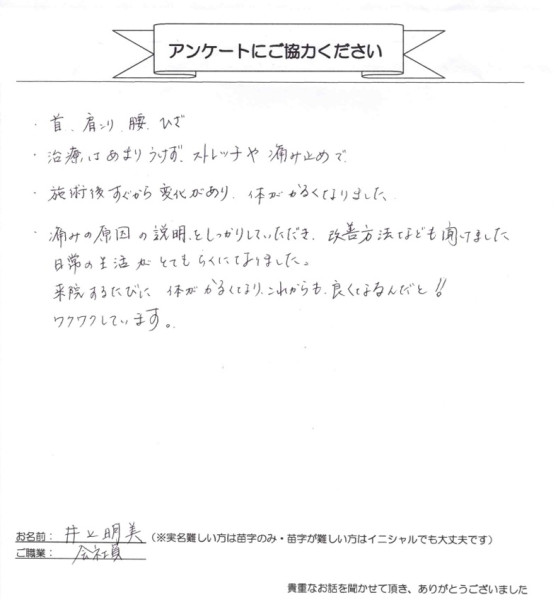 アンケートにご協力ください
・首、肩こり、腰、ひざ
・治療はあまりうけず、ストレッチや痛み止めで
・施術後すぐから変化があり、体がかるくなりました
・痛みの原因の説明をしっかりしていただき、改善方法なども聞けました
日常の生活がとてもらくになりました。
来院するたびに体がかるくなり、これからも、良くなるんだと!!
ワクワクしています。
お名前: 井上明美 (※実名難しい方は苗字のみ・苗字が難しい方はイニシャルでも大丈夫です)
ご職業: 会社員
貴重なお話を聞かせて頂き、ありがとうございました